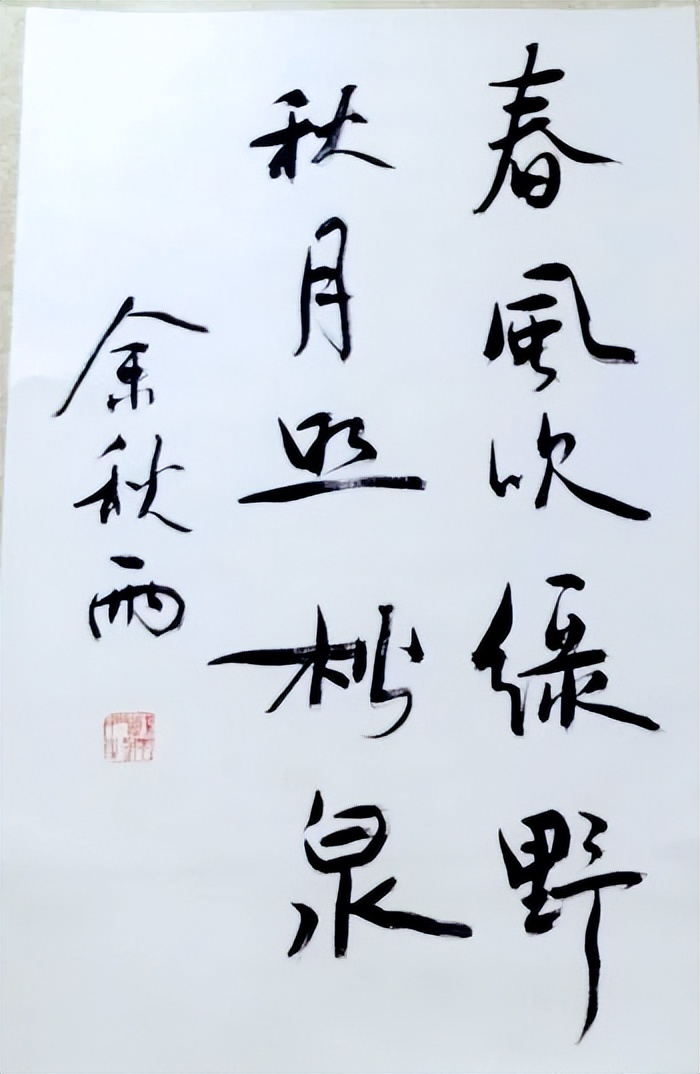 春風吹緑野
秋月照松泉
余秋雨